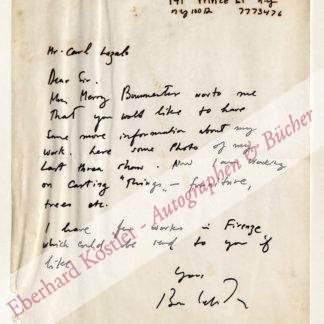 141 Prince St NY
NY 10012 7773476
Mr. Carl Lazslo
Dear Sir.
Mrs Merry Baumenter wrote me
That you would like to have
some more information about my
work. here some photo of my
last three show. Now I am working
on casting "Things" – furniture,
trees etc.
I have few works in Firenze
which could be send to you if
like
yours
Eberhard Köstler - Autographen & Bücher